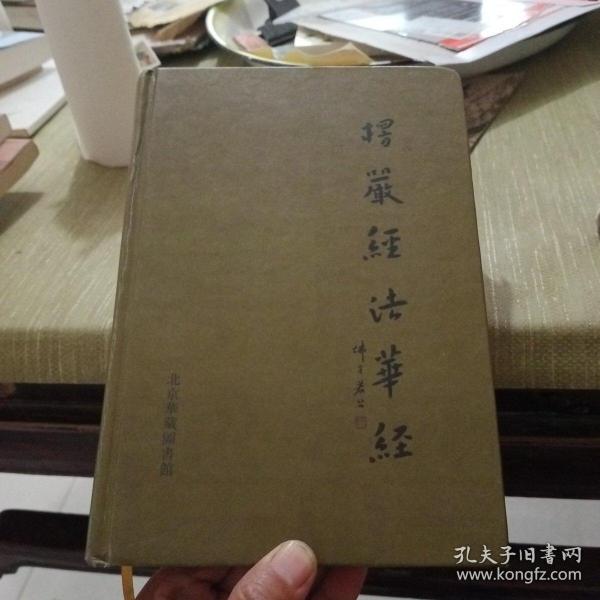 楞嚴經法華経
北京華藏圖書館
孔夫子旧书网
www.kongfz.com